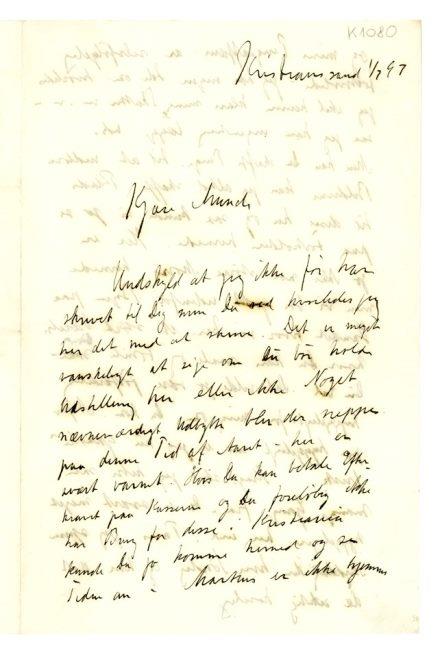 K1080
Kristianssand 1/7 97
Kjære Munch
Undskyld at jeg ikke før har
skrevet til Dig men Du ved hvorledes jeg
har det med at skrive. Det er meget
vanskeligt at sige om Du bør holde
Udstilling her eller ikke Noget
nævneværdigt Udbytte blir der neppe
paa denne Tid af Aaret - her er
svært varmt. Hvis Du kan betale Efter-
kravet paa Kasserne og Du foreløbig ikke
har Brug for disse i Kristiania
kunde Du jo komme herned og se
Tiden an - Markus er ikke hjemme